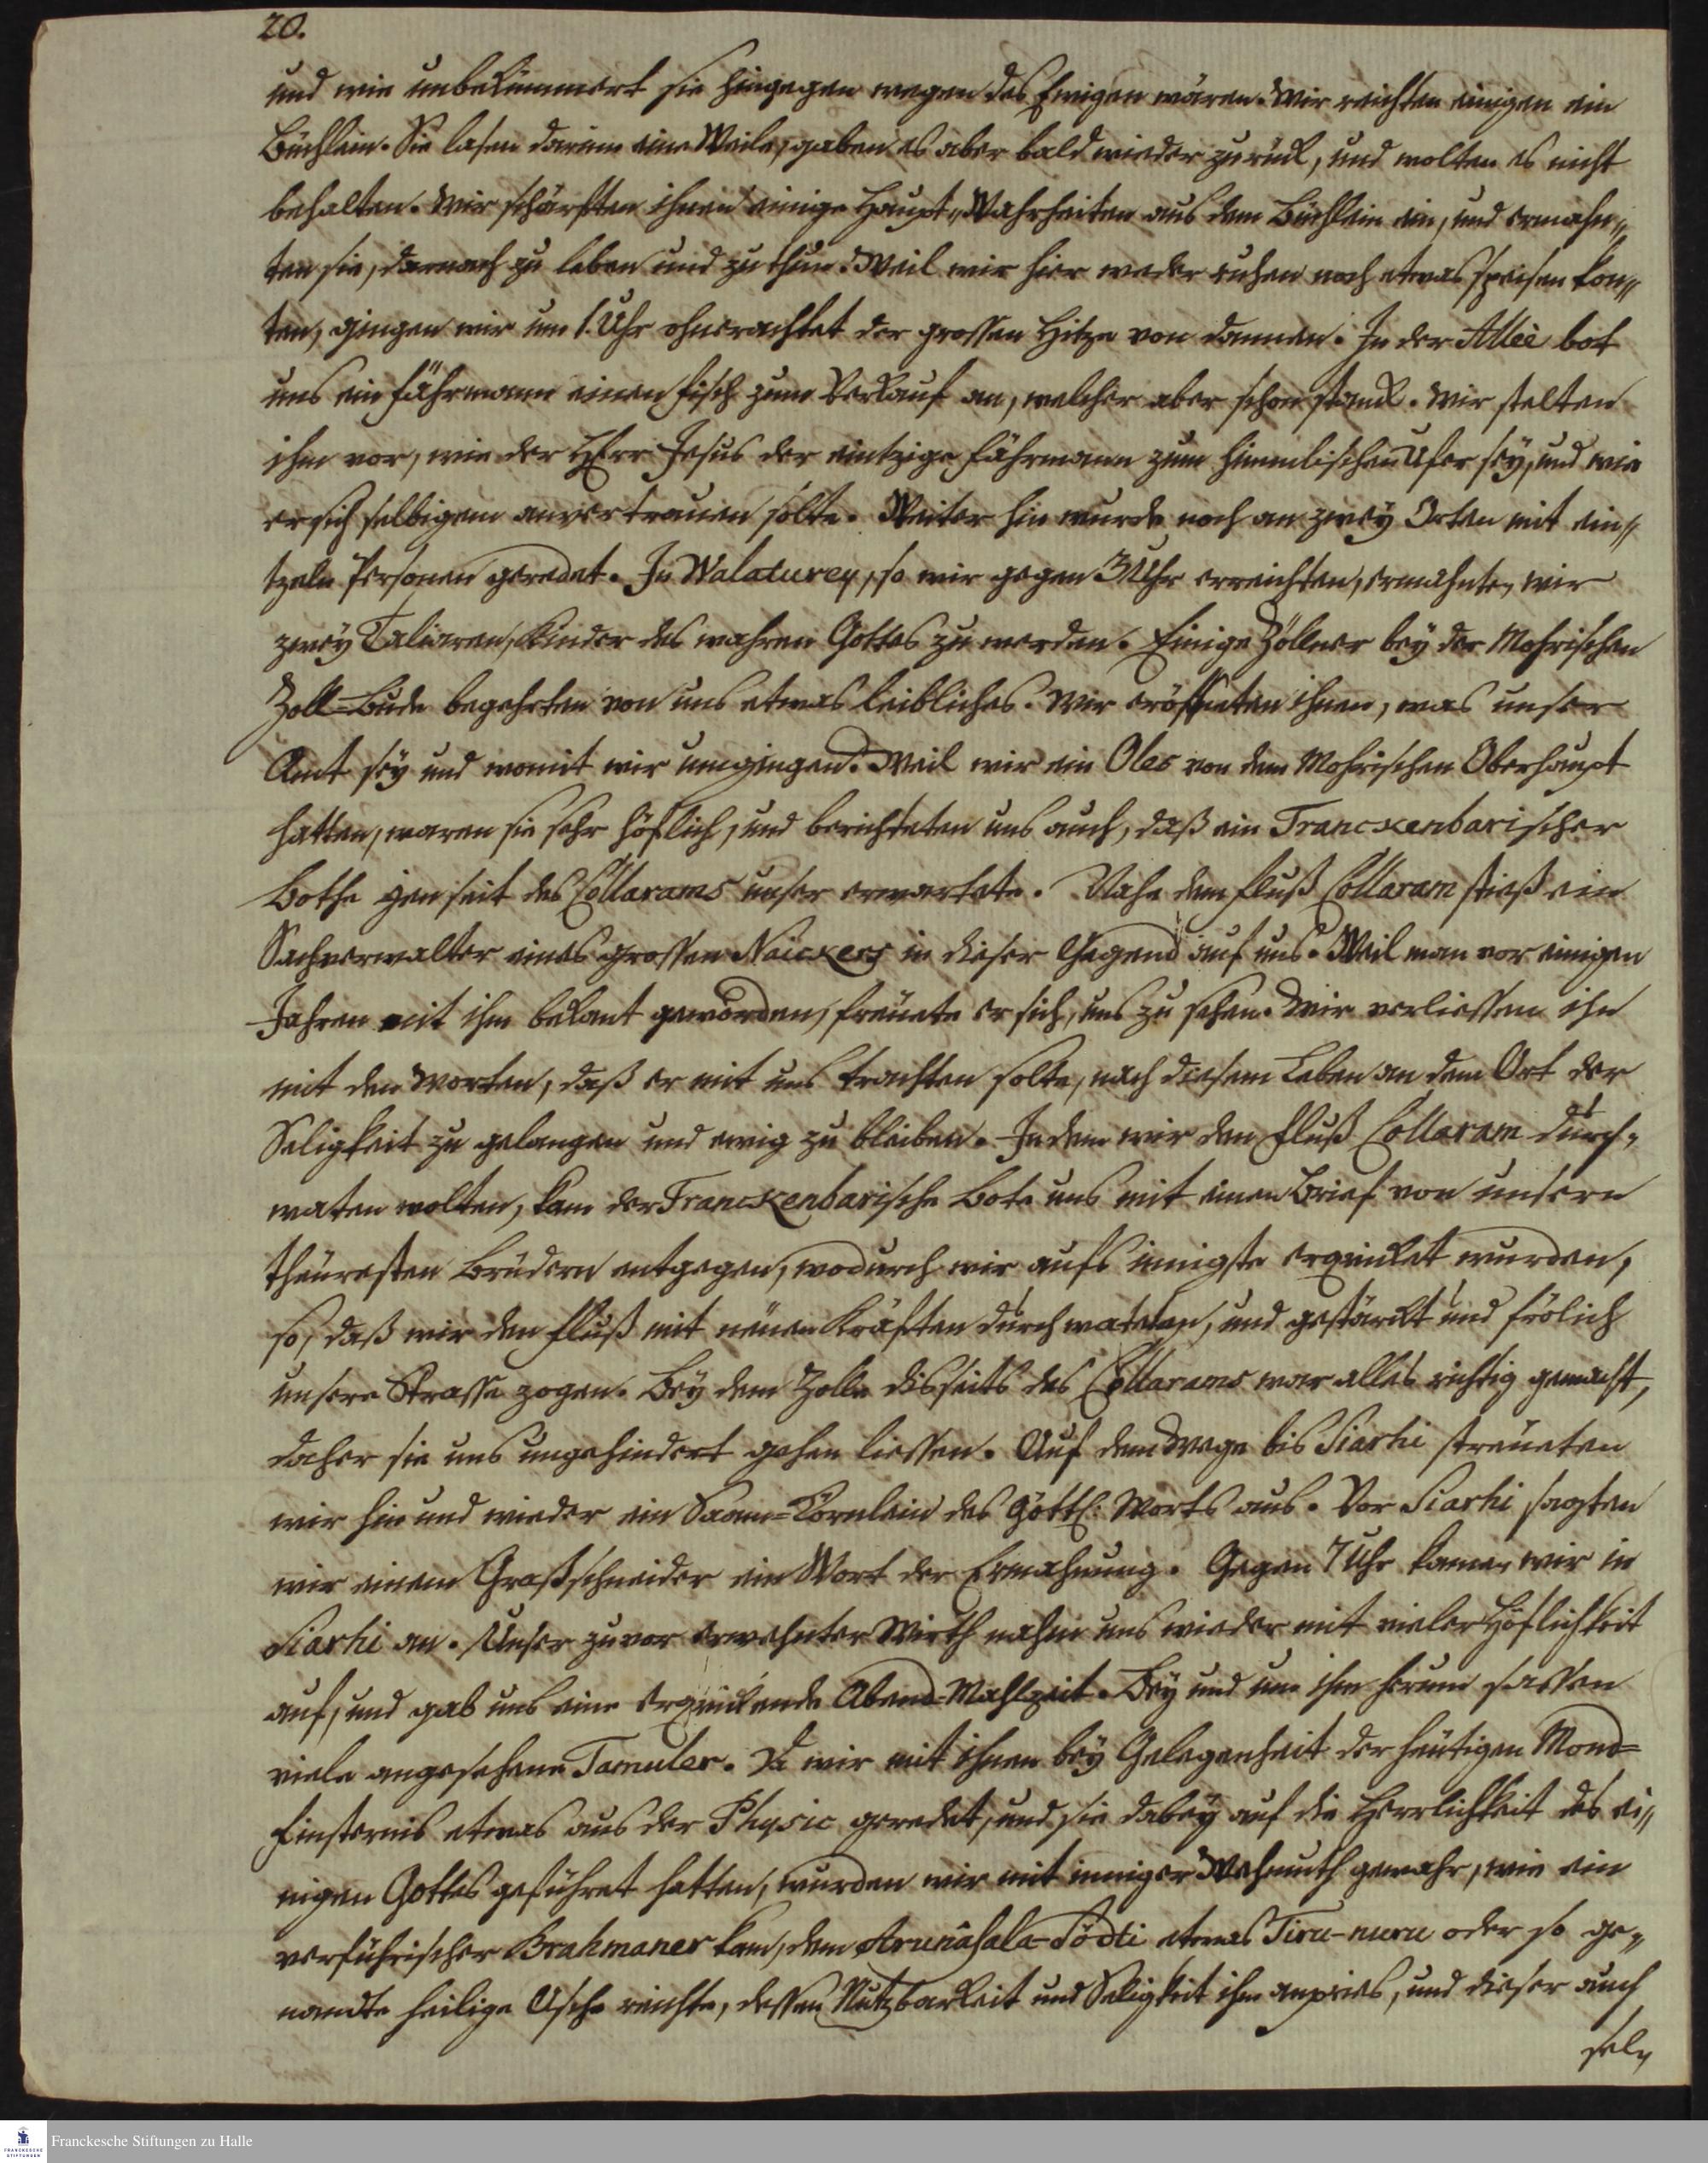 20.
und wie unbekümmert sie hingegen wegen des Ewigen wären. Wir reichten einigen ein
Büchlein. Sie lasen darinn eine Weile, gaben es aber bald wieder zurück, und wolten es nicht
behalten. Wir schärften ihnen einige Haupt-Wahrheiten aus dem Büchlein ein, und ermahn-
ten sie, darnach zu leben und zu thun. Weil wir hier weder ruhen noch etwas speisen kon-
ten, gingen wir um 1. Uhr ohnerachtet der grossen Hitze von dannen. In der Alleè bot
uns ein Fährmann einen Fisch zum Verkauf an, welcher aber schon stanck. Wir stelten
ihm vor, wie der HErr Jesus der eintzige Fährmann zum himmlischen Ufer sey, und wie
er sich selbigem anvertrauen solte. Weiter hin wurde noch an zwey Orten mit ein-
tzeln Personen geredet. In Walaturey, so wir gegen 3 Uhr erreichten, ermahnten wir
zwey Taliaren, Kinder des wahren Gottes zu werden. Einige Zöllner bey der Mohrischen
Zoll-Bude begehrten von uns etwas leibliches. Wir eröffneten ihnen, was unser
Amt sey und womit wir umgingen. Weil wir ein Oles von dem Mohrischen Oberhaupt
hatten, waren sie sehr höflich, und berichteten uns auch, daß ein Tranckenbarischer
Bothe jenseit des Collarams unser erwartete. Nahe dem Fluß Collaram stieß ein
Sachverwalter eines grossen Naickers in dieser Gegend auf uns. Weil man vor einigen
Jahren mit ihm bekant geworden, freuete er sich, uns zu sehen. Wir verliessen ihn
mit den Worten, daß er mit uns trachten solte, nach diesem Leben an dem Ort der
Seligkeit zu gelangen und ewig zu bleiben. Indem wir den Fluß Collaram durch-
waten wolten, kam der Tranckenbarische Bote uns mit einen Brief von unsern
theuresten Brüdern entgegen, wodurch wir aufs innigste erquicket wurden,
so, daß wir den Fluß mit neuen Kräften durchwateten, und gestärckt und frölich
unsere Strasse zogen. Bey dem Zolle disseits des Collarams war alles richtig gemacht,
daher sie uns ungehindert gehen liessen. Auf dem Wege bis Siarhi streueten
wir hin und wieder ein Saam-Körnlein des Göttl: Worts aus. Vor Siarhi sagten
wir einem Graßschneider ein Wort der Ermahnung. Gegen 7 Uhr kamen wir in
Siarhi an. Unser zuvor erwehnter Wirth nahm uns wieder mit vieler Höflichkeit
auf, und gab uns eine erquickende Abend-Mahlzeit. Bey und um ihm herum sassen
viele angesehene Tamuler. Da wir mit ihnen bey Gelegenheit der heutigen Mond-
Finsternis etwas aus der Physic geredet, und sie dabey auf die Herrlichkeit des ei-
nigen Gottes geführet hatten, wurden wir mit inniger Wehmuth gewahr, wie ein
verführischer Brahmaner kam, dem Arunâsala-Södti etwas Tiru-nuru oder so ge-
nandte heilige Asche reichte, dessen Nutzbarkeit und Seligkeit ihm anpries, und dieser auch
sel-
Franckesche Stiftungen zu Halle